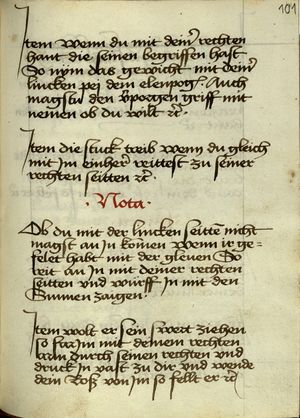 101
Item wenn du mit dein rechten
hant die seinen begriffen hast
So nym das gewicht mit dein
lincken pei dem elenpog. Auch
magstu den vorgen griff mit
nemen ob du wilt etc.
Item die stuck treib wenn du gleich
mit Im einher reittest zu seiner
rechten seitten etc.
Nota.
Ob du mit der lincken seitten nicht
magst an In komen wenn ir ge-
felet habt mit der gleuen So
reit an In mit deiner rechten
seitten und würff In mit den
Sinnen zaigen.
Item wolt er sein swert ziehen
so far Im mit deinem rechten
arm durch seinen rechten und
druck In vast zu dir und wende
dein Roß von Im so fellt er etc